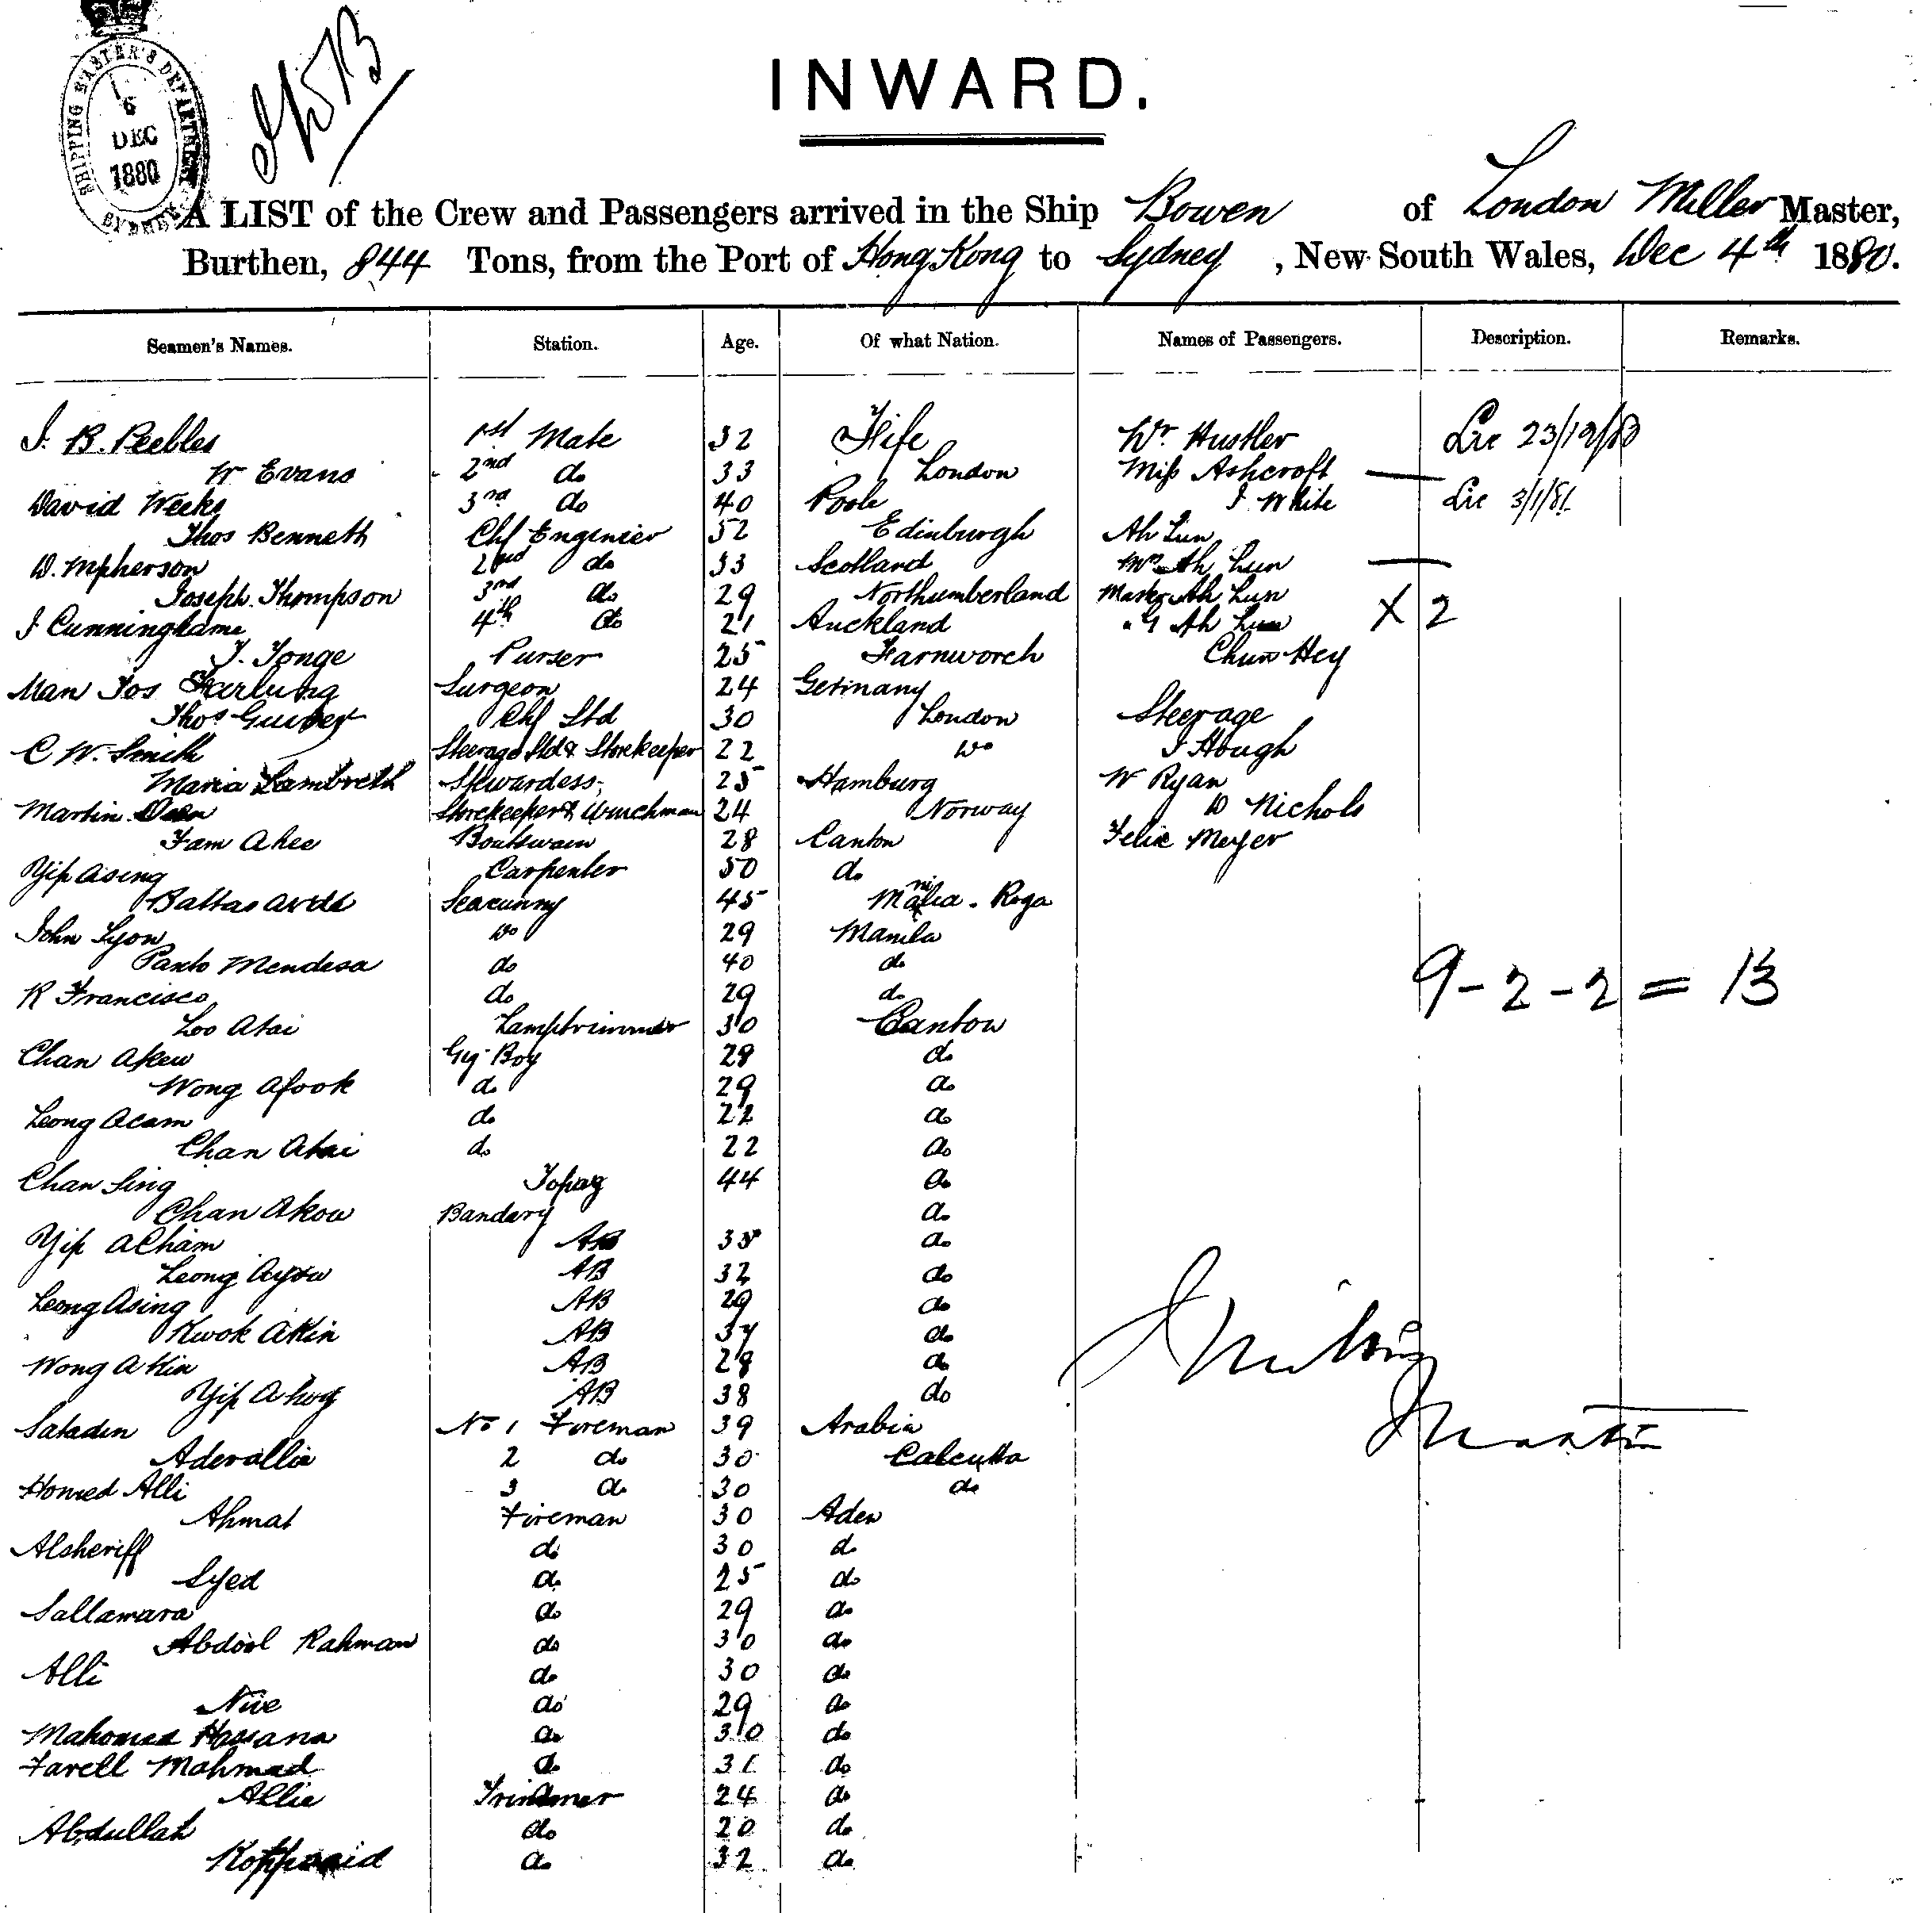 SHIPPING MASTER'S DEPARTMENT
6
DEC
1880
INWARD.
A LIST of the Crew and Passengers arrived in the Ship Bowen of London Miller Master,
Burthen, 844 Tons, from the Port of Hong Kong to Sydney, New South Wales, Dec 4th 1880.
Seamen's Names. Station. Age. Of what Nation. Names of Passengers. Description. Remarks.
J. B. Peebles 1st Mate 32 Fife Mr Hustler 23/12/80
W Evans 2nd do 33 London Miss Ashcroft
David Weeks 3rd do 40 Poole J White 3/1/81
Thos Bennett Chf Enginier 52 Edinburgh Ah Lun
D. Mpherson 2nd do 33 Scotland Mrs Ah Lun
Joseph Thompson 3rd do 29 Northumberland Master Ah Lun
J Cunninghame 4th do 21 Auckland " Ah Lun X 2
T. Tonge Purser 25 Farnworch Chun Hey
Surgeon 24 Germany
Thos Chf Std 30 London Steerage
C W. Smith Steerage Std & Storekeeper 22 Do J Hough
Maria Lambreth Stewardess 25 Hamburg W Ryan
Martin Storekeeper & Winchman 24 Norway D Nichols
Fam Ahee Boatswain 28 Canton Felix Meyer
Yip Asing Carpenter 50 do
Seacunny 45
John Lyon Do 29 Manila
Mendesa do 40 do
R Francisco do 29 do
9-2-2 = 13
Loo Atai Lamptrimmer 30 Canton
Chan Akew Gig Boy 28 do
Wong Afook do 29 do
Leong Acam do 22 do
Chan Atai do 22 do
Chan Sing Topaz 44 do
Chan Akow Bandary do
Yip Acham AB 35 do
Leong Ayow AB 32 do
Leong Asing AB 29 do
Kwok Akin AB 37 do
Wong Akin AB 28 do
Yip Ahoy AB 38 do
Saladin No 1 Fireman 39 Arabia
Aderallie 2 do 30 Calcutta
Homed Alli 3 do 30 do
Ahmat Fireman 30 Aden
Alsheriff do 30 do
Syed do 25 do
Sallamara do 29 do
Abdool Rahman do 30 do
Alli do 30 do
do 29 do
Mahomed Hassana do 30 do
Farell Mahmad do 31 do
Allie Trimmer 24 do
Abdullah do 20 do
do 32 do